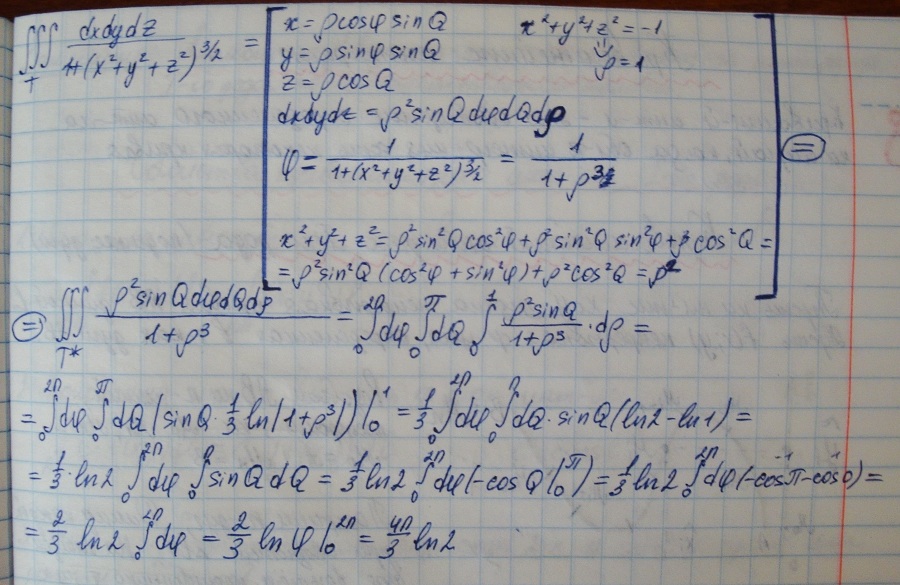 ∭_T dxdydz / 1+(x²+y²+z²)^3/2 = [ x = ρcosφ sinQ x²+y²+z² = -1
y = ρsinφ sinQ ⇓ ρ=1
z = ρcosQ
dxdydz = ρ²sinQdφdQdρ
φ = 1 / 1+(x²+y²+z²)^3/2 = 1 / 1+ρ³
x²+y²+z² = ρ²sin²Qcos²φ+ρ²sin²Q sin²φ+ρ²cos²Q =
= ρ²sin²Q (cos²φ + sin²φ)+ρ²cos²Q = ρ² ] =
= ∭_T* ρ²sinQdφdQdρ / 1+ρ³ = ∫₀^2π dφ ∫₀^π dQ ∫₀^1 ρ²sinQ / 1+ρ³ · dρ =
= ∫₀^2π dφ ∫₀^π dQ (sinQ · 1/3 ln|1+ρ³|) |₀^1 = 1/3 ∫₀^2π dφ ∫₀^π dQ · sinQ (ln2-ln1) =
= 1/3 · ln2 ∫₀^2π dφ ∫₀^π sinQ dQ = 1/3 ln2 ∫₀^2π dφ (-cosQ |₀^π) = 1/3 ln2 ∫₀^2π dφ (-cosπ-cos0) =
= 2/3 ln2 ∫₀^2π dφ = 2/3 ln φ |₀^2π = 4π/3 ln2